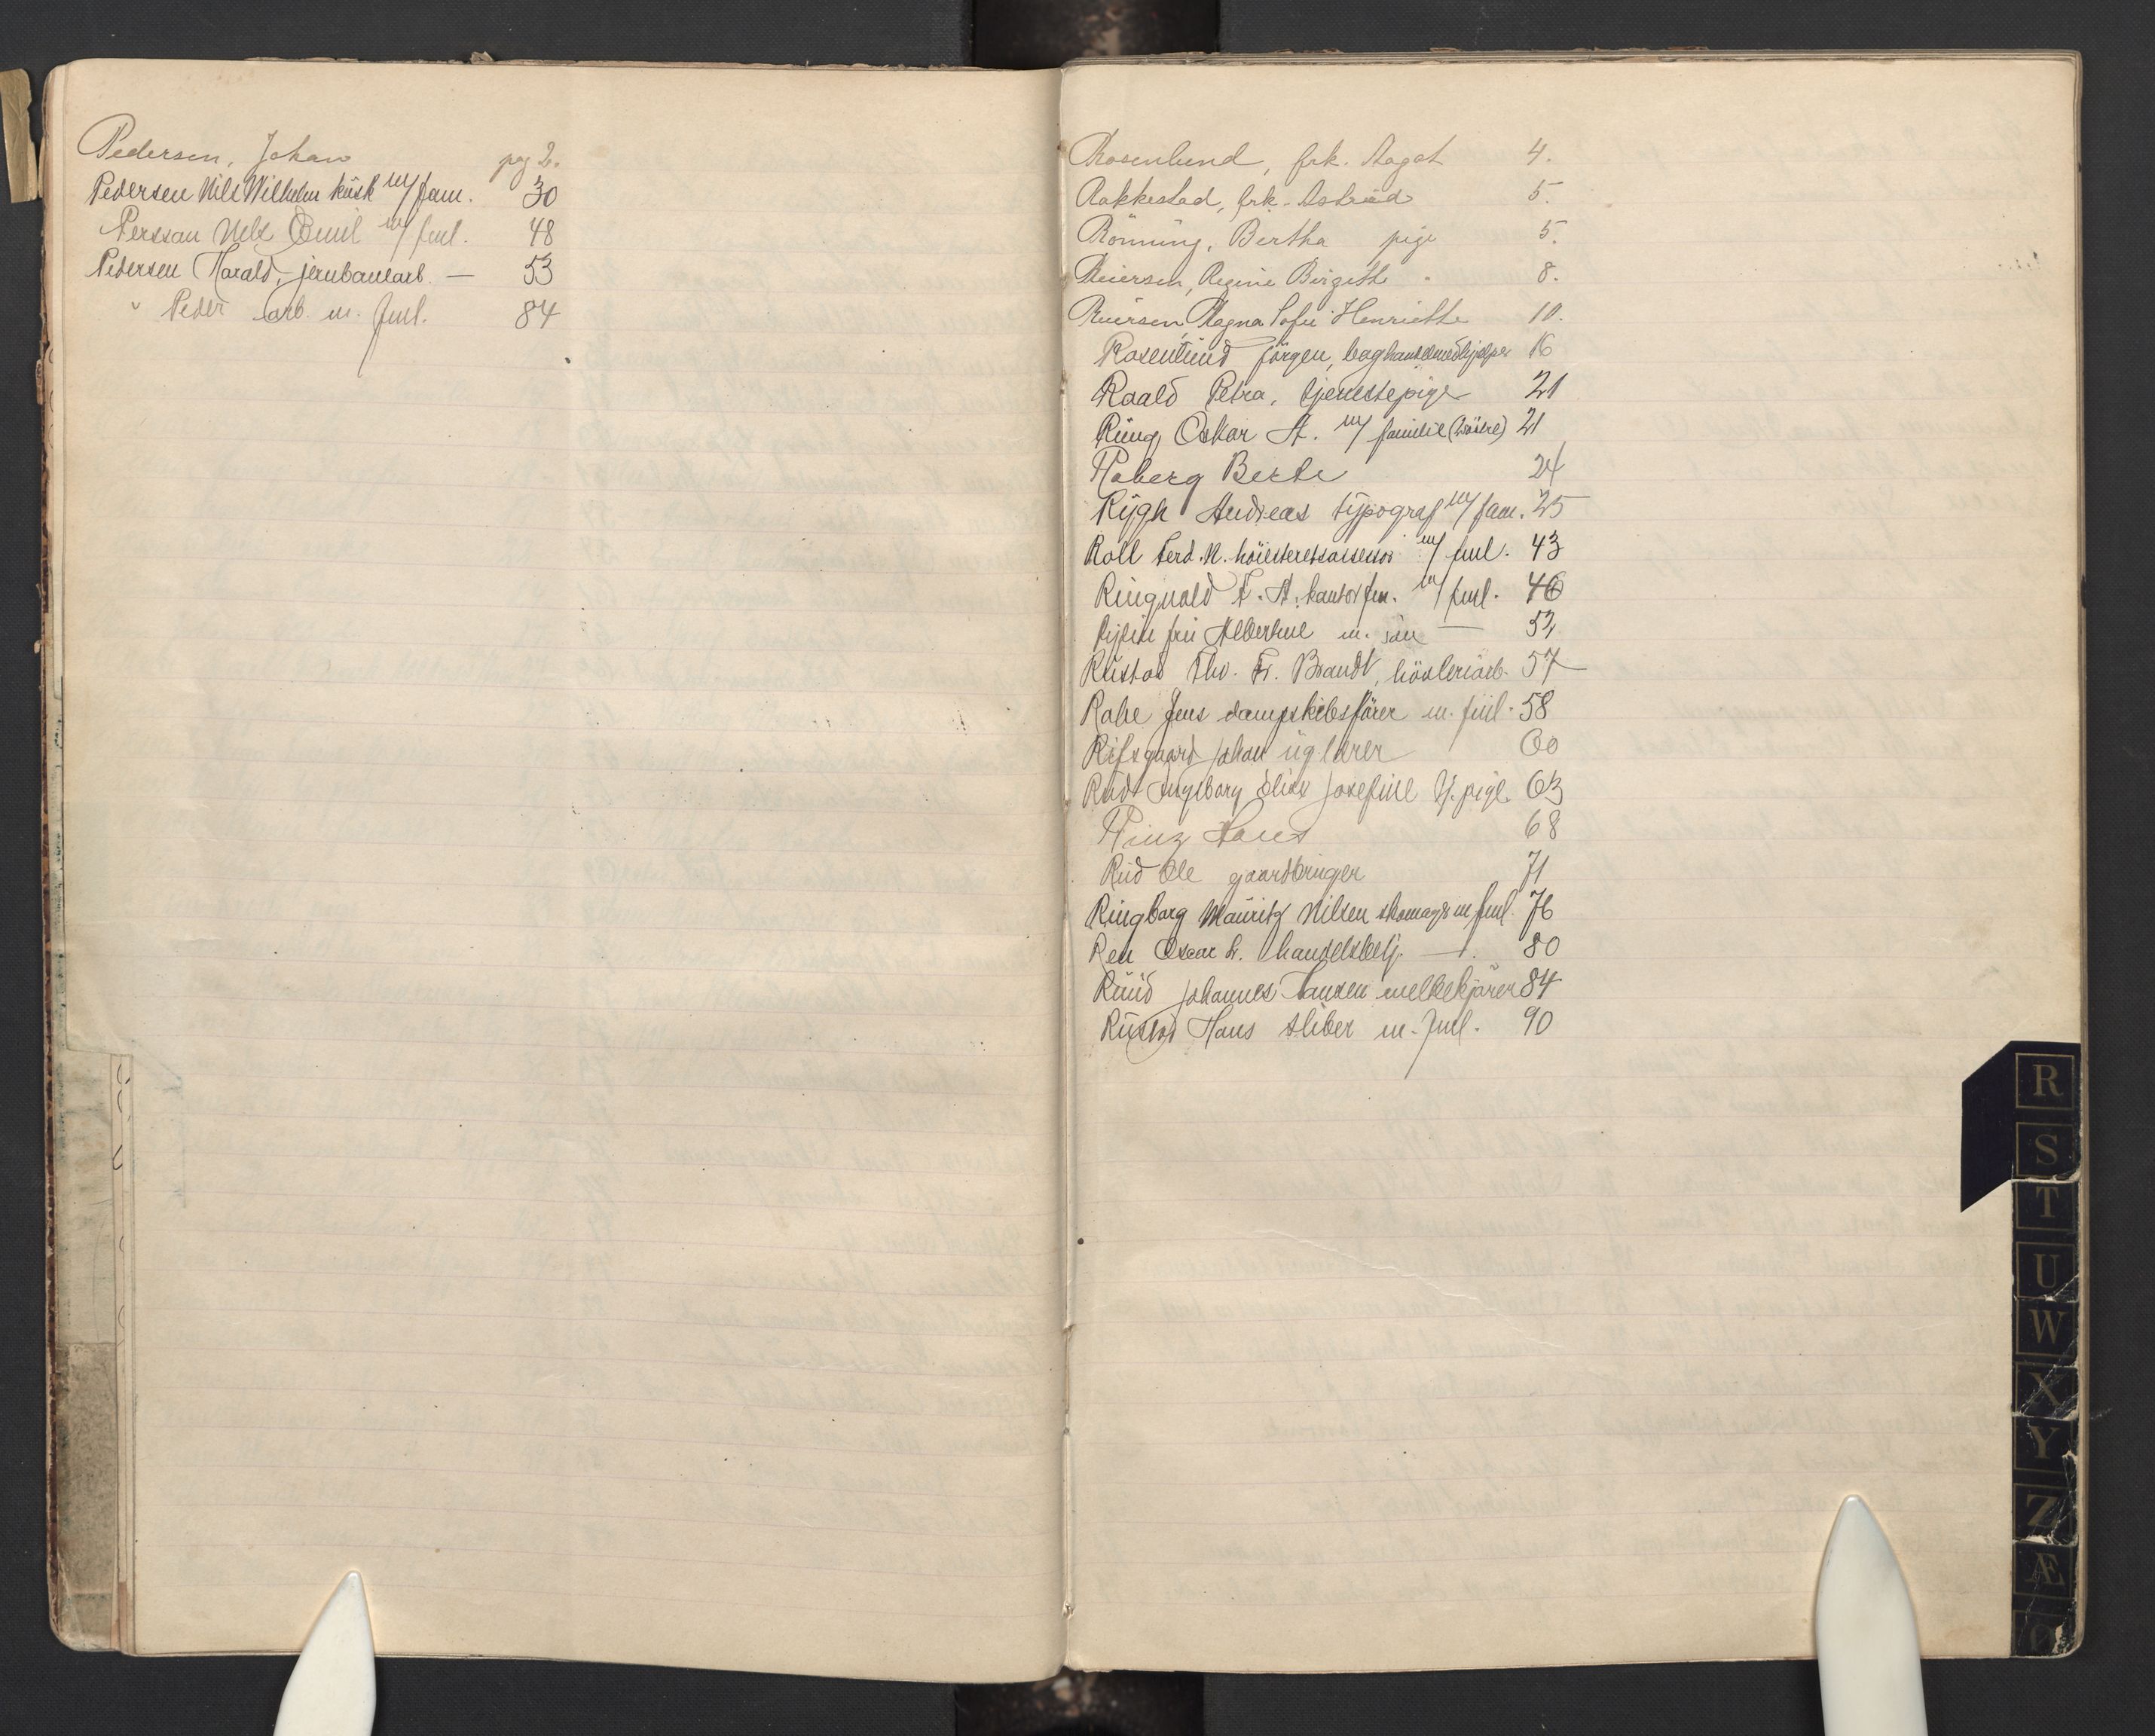 Pedersen, Johan pag 2.
Pedersen Nils Wilhelm kusk m/ fam. 30
Perssan Nels Emil m/ fml. 48
Pedersen Harald, jernbanearb. — 53
" Peder arb. m. fml. 84
Rosenlund, frk. Aagot 4.
Rakkestad, frk. Astrid 5.
Rönning, Bertha pige 5.
Reiersen, Regine Birgitte " 8.
Reiersen, Magna Sofie Henriette 10.
Rosenlund Jörgen, baghandelmedhjelper 16
Raald Petra, tjenestepige 21
Ring Oskar A. m/ familie 21
Raberg Berte 24
Rygh Andreas typograf m/ fam. 25
Roll Ferd. N. höiesteretsassessor m/ fml. 43
Ringvold F. A. kontorfm. m/ fml. 46
fru Albertine m. sön — 52
Rustad Thv. Fr. Brandt, hövleriarb. 57
Rabe Jens dampskibsförer m. fml. 58
Rifsgaard Johan 60
Rud Ingeborg Elise Josefine tj. pige 63
Rinz Hans 68
Rud Ole gaardbruger 71
Ringborg Mauritz Nilsen skomager m fml. 76
Ren Oscar handelsbetj. — 80
Ruud Johannes Hansen melkekjörer 84
Rustad Hans sliber m. fml. 90
R
S
T
U
W
X
Y
Z
Æ
Ø